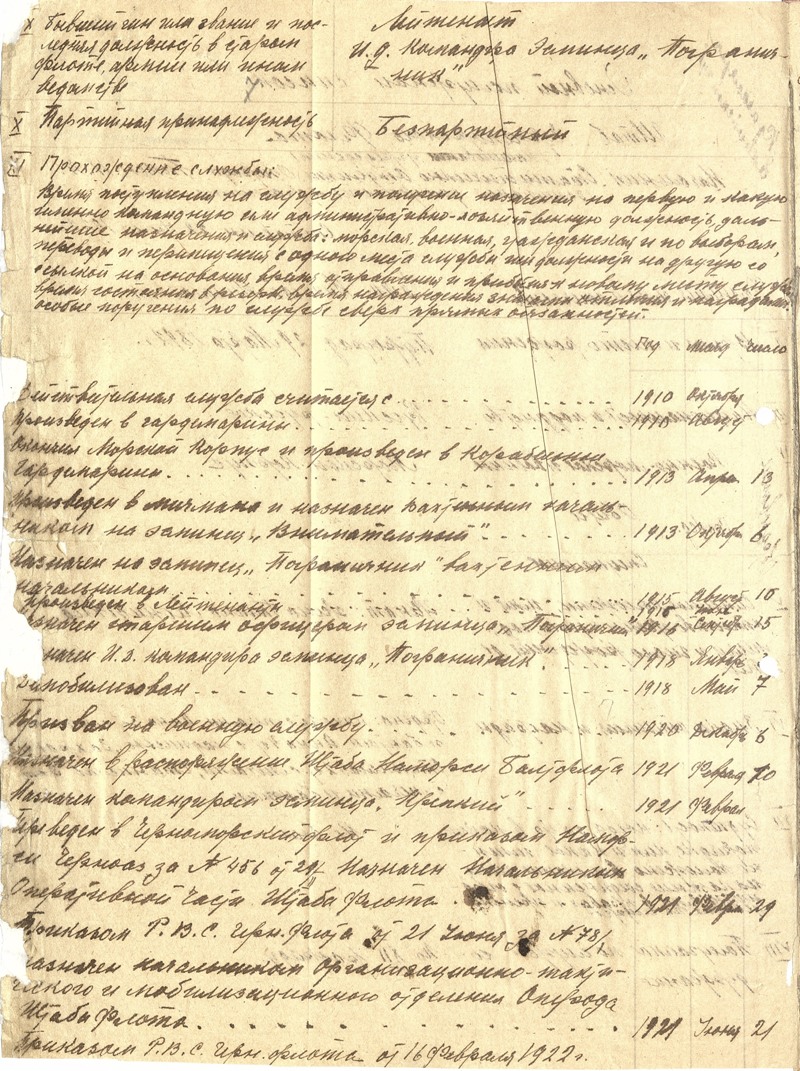 X Бывший чин или звание и пос- Лейтенант
ледняя должность в старом И.д. Командира Эсминца „Погранич-
флоте, армии или ином ник"
ведомстве
X Партийная принадлежность Безпартийный
Прохождение службы:
Время поступления на службу и получения назначения на первую и какую
именно командную или административно-хозяйственную должность, даль-
нейшие назначения и служба: морская, военная, гражданская и по выборам,
переводы и перемещения с одного места службы или должности на другую со
ссылкой на основания, время отправления и прибытия к новому месту службы,
время состояния в резерве, время награждения знаками отличия и наградами,
особые поручения по службе сверх прямых обязанностей.
Год месяц число
Действительная служба считается с 1910 Октября
Произведен в гардемарины 1910 Август
Окончил Морской Корпус и произведен в Корабельные
Гардемарины 1913 Апрт 13
Произведен в мичмана и назначен Вахтенным началь-
ником на эсминец „Внимательный" 1913 Октябр 6
Назначен на эсминец „Пограничник" вахтенным
начальником 1915 Август 10
Произведен в Лейтенанты 1916
назначен старшим офицером эсминца „Пограничник" 1916 15
значен И.д. командира эсминца „Пограничник". 1918 Январ
Демобилизован 1918 Май 7
Призван на военную службу. 1920 Декабр 6
Назначен в распоряжение Штаба Наморси Балтфлота 1921 Феврал 10
Назначен командиром эсминца „Крепкий" 1921 Феврал
Переведен в Черноморский флот и приказом Комов-
си Черноаз за № 456 от 29/ Назначен Начальником
Оперативной Части Штаба Флота. 1921 Феврл 29
Приказом Р.В.С. Черн. Флота от 21 Июня за № 78/
назначен начальником Организационно-такти-
ческого и мобилизационного отделения Оперода
Штаба Флота. 1921 Июня 21
Приказом Р.В.С. Черн. Флота от 16 Февраля 1922 г.